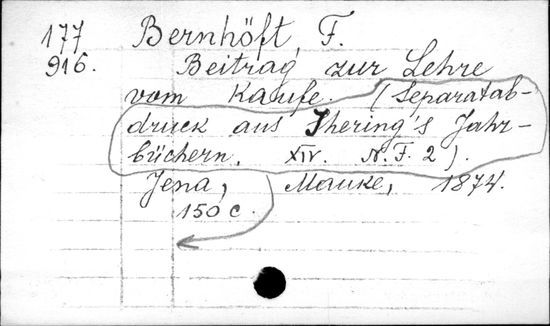 177
916.
Bernhöft, F.
Beitrag zur Lehre
vom Kaufe. (Separatab-
druck aus Ihering's Jahr-
büchern. XIV. N.F. 2).
Jena, Mauke, 1874.
150 c.